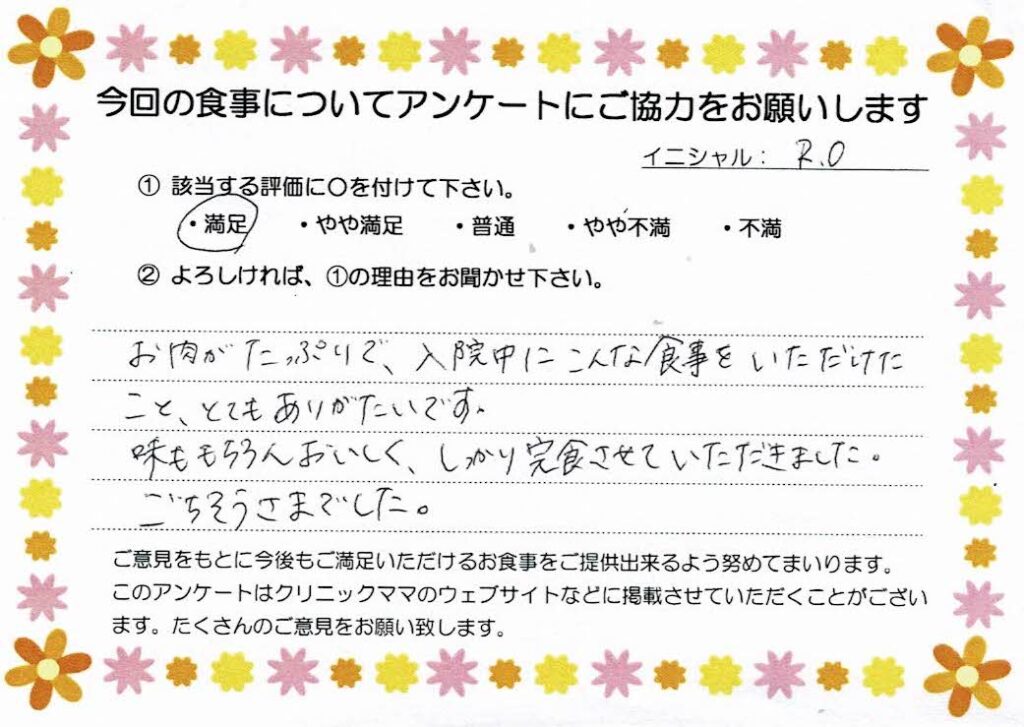 今回の食事についてアンケートにご協力をお願いします
イニシャル： R.O
① 該当する評価に〇を付けて下さい。
・満足 ・やや満足 ・普通 ・やや不満 ・不満
② よろしければ、①の理由をお聞かせ下さい。
お肉がたっぷりで、入院中にこんな食事をいただけた
こと、とてもありがたいです。
味ももちろんおいしく、しっかり完食させていただきました。
ごちそうさまでした。
ご意見をもとに今後もご満足いただけるお食事をご提供出来るよう努めてまいります。
このアンケートはクリニックママのウェブサイトなどに掲載させていただくことがござい
ます。たくさんのご意見をお願い致します。